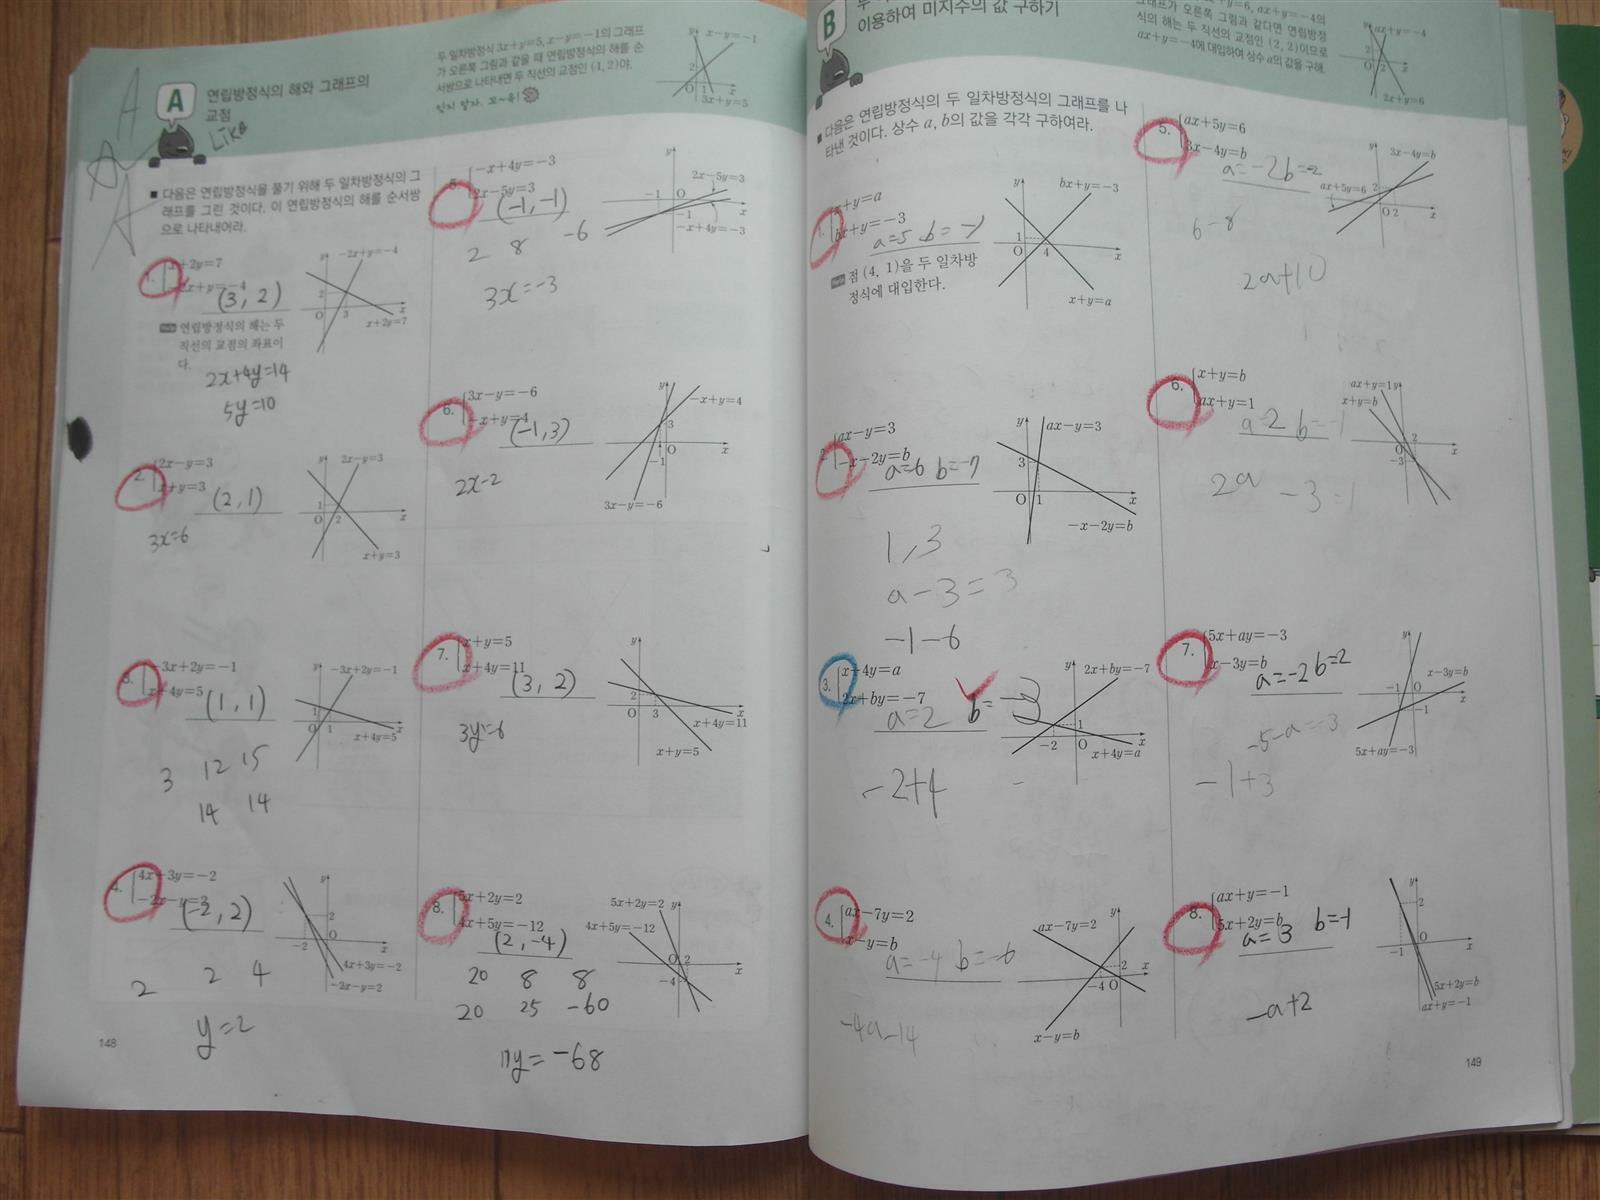 A
연립방정식의 해와 그래프의
교점
LIKE
두 일차방정식 3x+y=5, x-y=-1의 그래프
가 오른쪽 그림과 같을 때 연립방정식의 해를 순
서쌍으로 나타내면 두 직선의 교점인 (1, 2)야.
잊지 말자. 꼬~옥!
x-y=-1
2
O 1 x
3x+y=5
■ 다음은 연립방정식을 풀기 위해 두 일차방정식의 그
래프를 그린 것이다. 이 연립방정식의 해를 순서쌍
으로 나타내어라.
1. x+2y=7
-2x+y=-4
(3, 2)
연립방정식의 해는 두
직선의 교점의 좌표이
다.
2x+4y=14
5y=10
-2x+y=-4
y
2
O 3 x
x+2y=7
2. 2x-y=3
x+y=3
(2, 1)
3x=6
2x-y=3
y
1
O 2 x
x+y=3
3. -3x+2y=-1
x+4y=5
(1, 1)
3 12 15
14 14
-3x+2y=-1
y
1
O 1 x
x+4y=5
4. 4x+3y=-2
-2x-y=2
(-2, 2)
2 2 4
y=2
y
2
-2 O x
4x+3y=-2
-2x-y=2
148
5. -x+4y=-3
2x-5y=3
(-1, -1)
2 8 -6
3x=-3
y
2x-5y=3
-1 O x
-1
-x+4y=-3
6. 3x-y=-6
-x+y=4
(-1, 3)
2x-2
y
-x+y=4
3
-1 O x
3x-y=-6
7. x+y=5
x+4y=11
(3, 2)
3y=6
y
2
O 3 x
x+4y=11
x+y=5
8. 5x+2y=2
4x+5y=-12
(2, -4)
20 8 8
20 25 -60
17y=-68
5x+2y=2 y
4x+5y=-12
O 2 x
-4
B
이용하여 미지수의 값 구하기
x+y=6, ax+y=-4의
그래프가 오른쪽 그림과 같다면 연립방정
식의 해는 두 직선의 교점인 (2, 2)이므로
ax+y=-4에 대입하여 상수 a의 값을 구해.
ax+y=-4
2
O 2 x
2x+y=6
■ 다음은 연립방정식의 두 일차방정식의 그래프를 나
타낸 것이다. 상수 a, b의 값을 각각 구하여라.
1. x+y=a
bx+y=-3
a=5 b=-1
점 (4, 1)을 두 일차방
정식에 대입한다.
y bx+y=-3
1
O 4 x
x+y=a
2. ax-y=3
-x-2y=b
a=6 b=-7
1, 3
a-3=3
-1-6
y ax-y=3
3
O 1 x
-x-2y=b
3. x+4y=a
2x+by=-7
a=2 b=-3
-2+4
y 2x+by=-7
1
-2 O x
x+4y=a
4. ax-7y=2
x-y=b
a=-4 b=-6
-4a-14
ax-7y=2 y
2
-4 O x
x-y=b
5. ax+5y=6
3x-4y=b
a=-2 b=-2
6-8
2a+10
y 3x-4y=b
ax+5y=6 2
O 2 x
6. x+y=b
ax+y=1
a=2 b=-1
2a-3=1
ax+y=1 y
x+y=b
2
-3 x
7. 5x+ay=-3
x-3y=b
a=-2 b=2
-5-a=-3
-1+3
y
x-3y=b
-1 O x
-1
5x+ay=-3
8. ax+y=-1
5x+2y=b
a=3 b=-1
-a+2
y
2
O x
-1
5x+2y=b
ax+y=-1
149